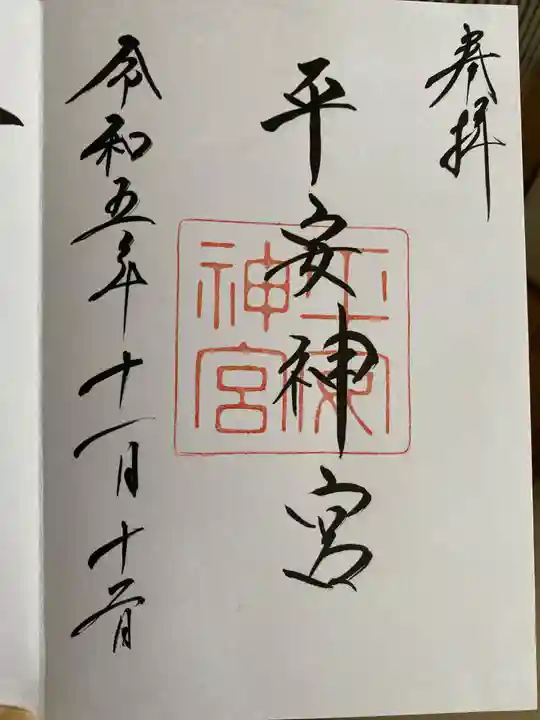 奉拝
平安神宮
平安
神宮
令和五年十一月十二日